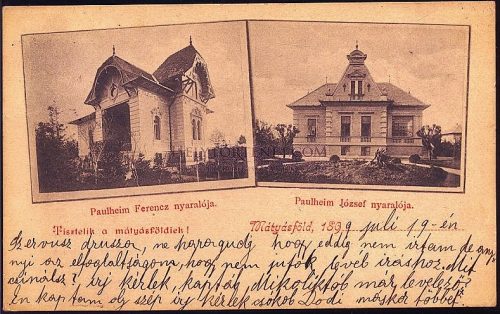 Paulheim Ferencz nyaralója.
Paulheim József nyaralója.
Tisztelik a mátyásföldiek!
Mátyásföld, 1899 juli 19-én
Szervusz druszа, ne haragudj hogy eddig nem irtam de any
nyi az elfoglaltságom, hogy nem jutok levél iráshoz. Mit
csinálsz? irj kérlek, kaptál Mikoliktól már levelet?
én kaptam oly szép irj kérlek sokat Dodi máskor többet